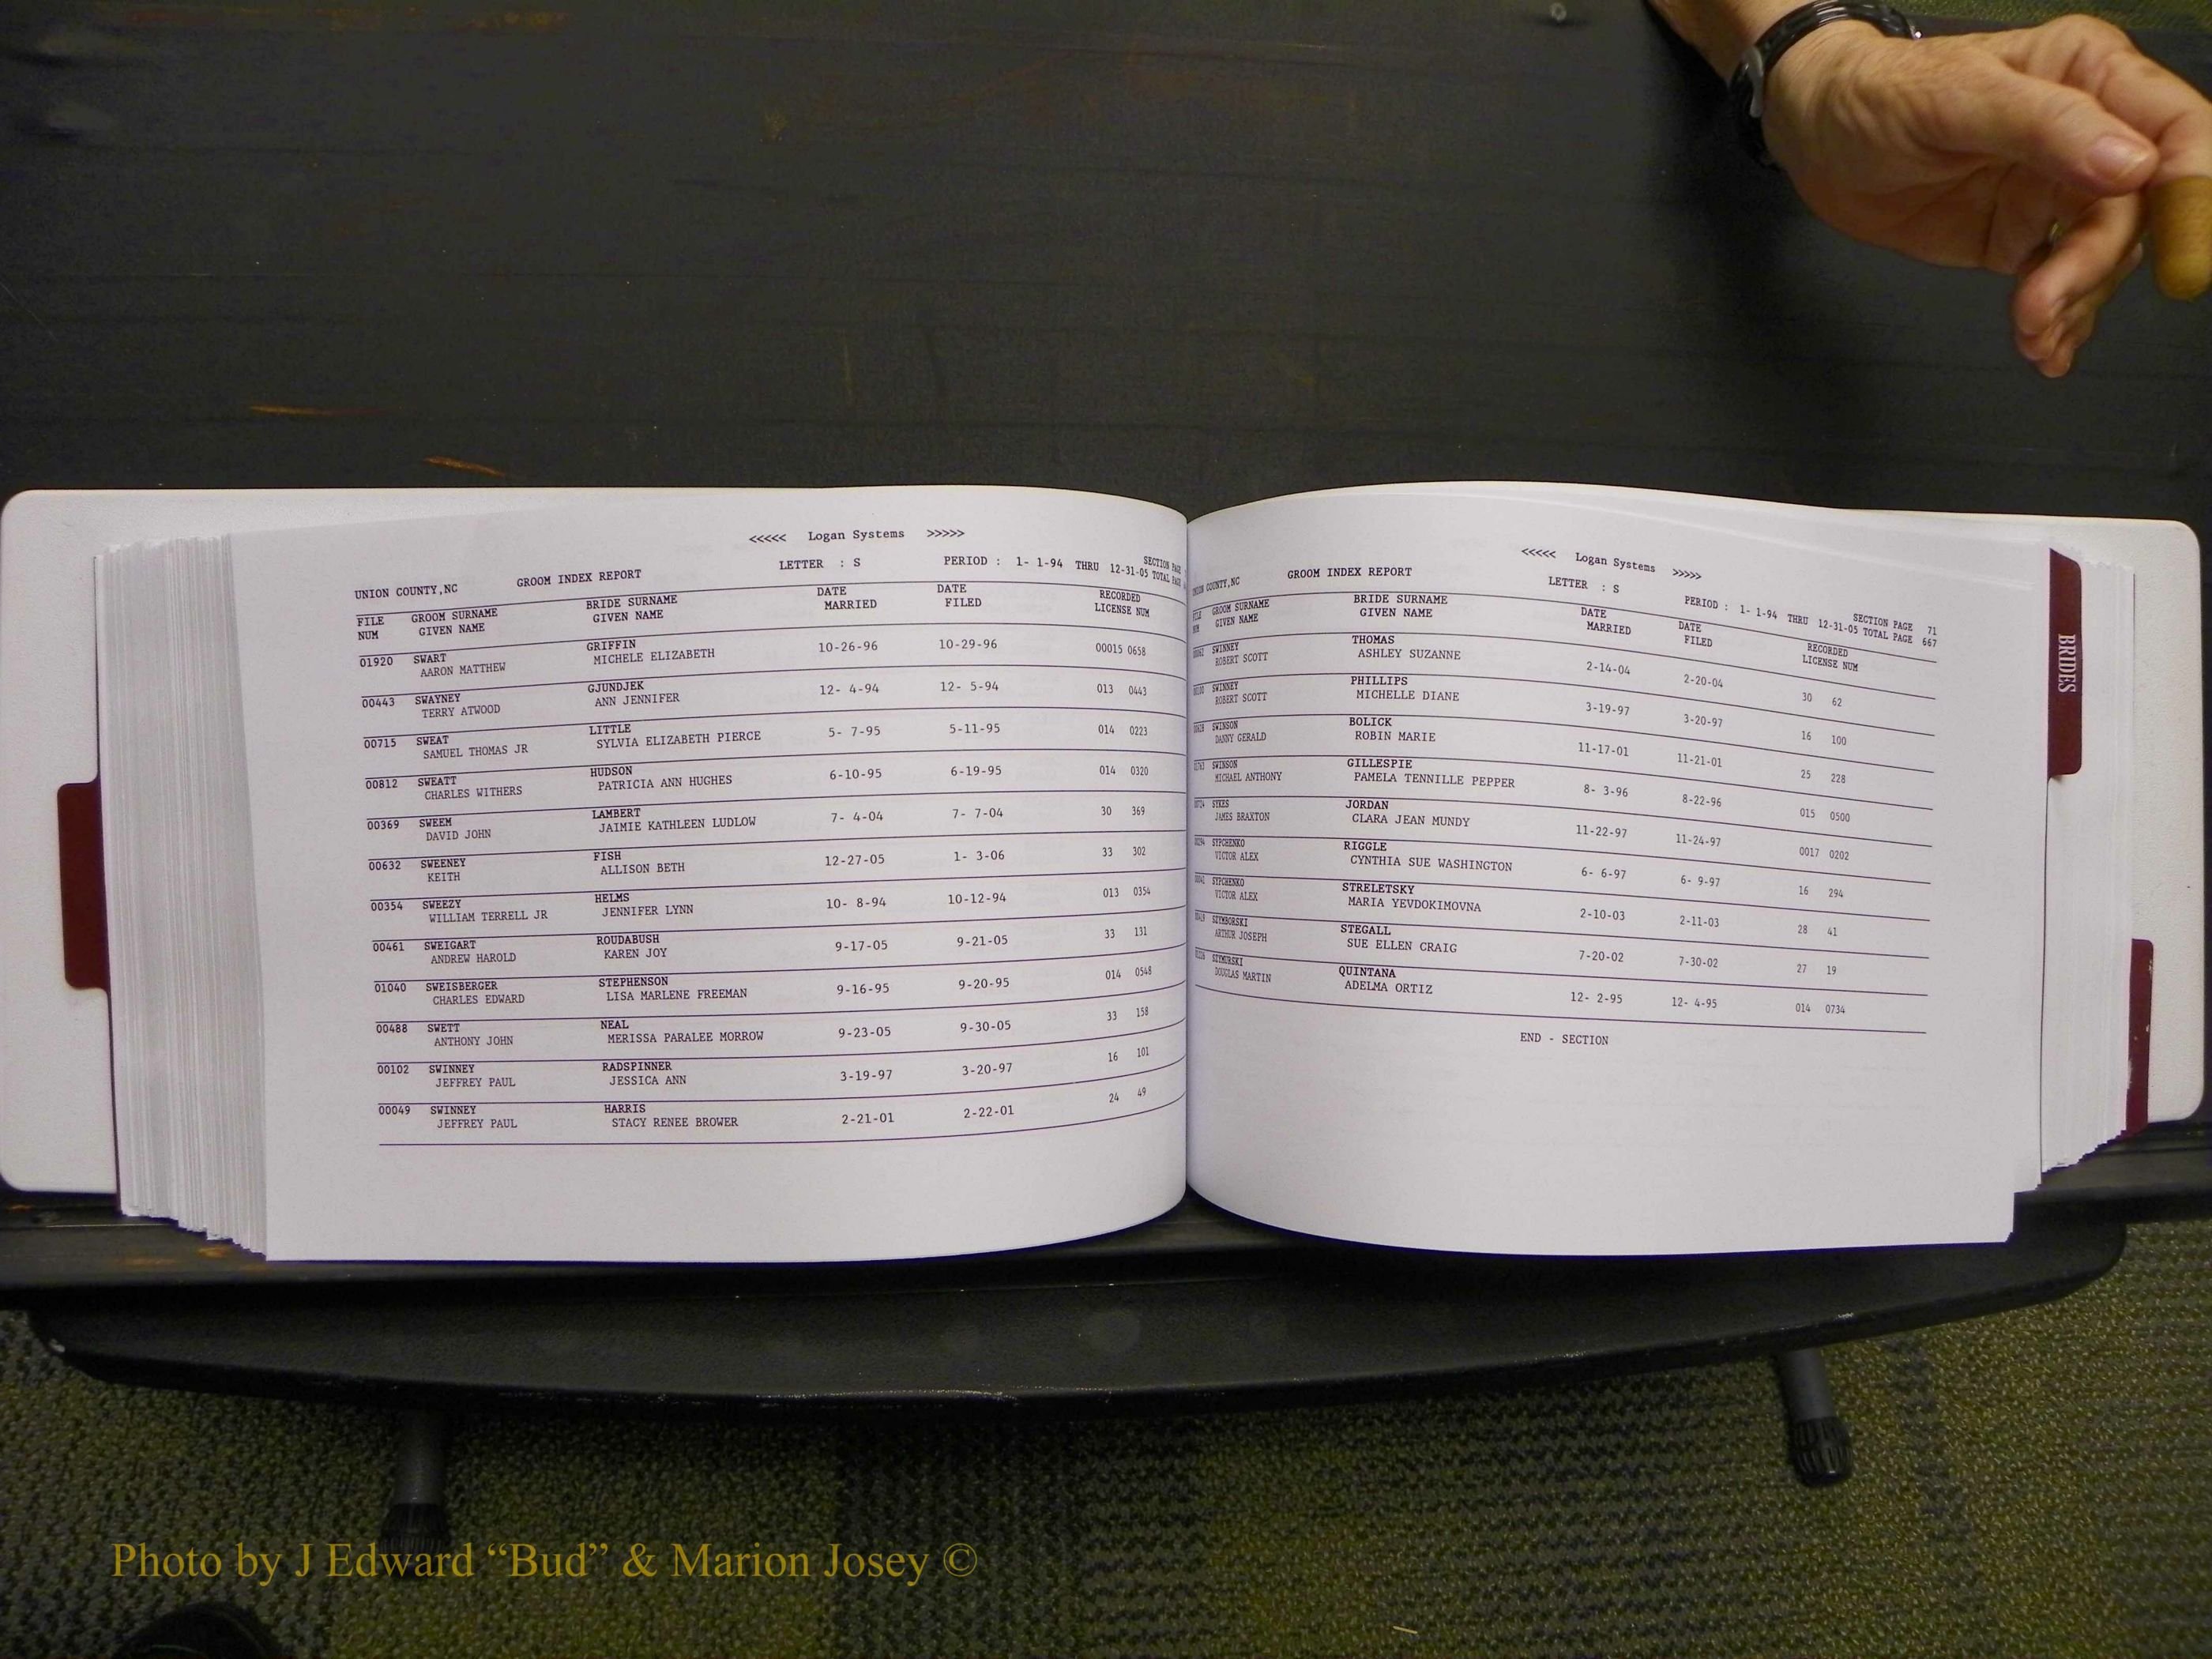 <<<<< Logan Systems >>>>>
UNION COUNTY,NC GROOM INDEX REPORT LETTER : S PERIOD : 1- 1-94 THRU 12-31-05
SECTION PAGE
TOTAL PAGE
FILE GROOM SURNAME BRIDE SURNAME DATE DATE RECORDED
NUM GIVEN NAME GIVEN NAME MARRIED FILED LICENSE NUM
01920 SWART GRIFFIN 10-26-96 10-29-96 00015 0658
AARON MATTHEW MICHELE ELIZABETH
00443 SWAYNEY GJUNDJEK 12- 4-94 12- 5-94 013 0443
TERRY ATWOOD ANN JENNIFER
00715 SWEAT LITTLE 5- 7-95 5-11-95 014 0223
SAMUEL THOMAS JR SYLVIA ELIZABETH PIERCE
00812 SWEATT HUDSON 6-10-95 6-19-95 014 0320
CHARLES WITHERS PATRICIA ANN HUGHES
00369 SWEEM LAMBERT 7- 4-04 7- 7-04 30 369
DAVID JOHN JAIMIE KATHLEEN LUDLOW
00632 SWEENEY FISH 12-27-05 1- 3-06 33 302
KEITH ALLISON BETH
00354 SWEEZY HELMS 10- 8-94 10-12-94 013 0354
WILLIAM TERRELL JR JENNIFER LYNN
00461 SWEIGART ROUDABUSH 9-17-05 9-21-05 33 131
ANDREW HAROLD KAREN JOY
01040 SWEISBERGER STEPHENSON 9-16-95 9-20-95 014 0548
CHARLES EDWARD LISA MARLENE FREEMAN
00488 SWETT NEAL 9-23-05 9-30-05 33 158
ANTHONY JOHN MERISSA PARALEE MORROW
00102 SWINNEY RADSPINNER 3-19-97 3-20-97 16 101
JEFFREY PAUL JESSICA ANN
00049 SWINNEY HARRIS 2-21-01 2-22-01 24 49
JEFFREY PAUL STACY RENEE BROWER
<<<<< Logan Systems >>>>>
UNION COUNTY,NC GROOM INDEX REPORT LETTER : S PERIOD : 1- 1-94 THRU 12-31-05
SECTION PAGE 71
TOTAL PAGE 667
FILE GROOM SURNAME BRIDE SURNAME DATE DATE RECORDED
NUM GIVEN NAME GIVEN NAME MARRIED FILED LICENSE NUM
SWINNEY THOMAS 2-14-04 2-20-04 30 62
ROBERT SCOTT ASHLEY SUZANNE
SWINNEY PHILLIPS 3-19-97 3-20-97 16 100
ROBERT SCOTT MICHELLE DIANE
SWINSON BOLICK 11-17-01 11-21-01 25 228
DANNY GERALD ROBIN MARIE
SWINSON GILLESPIE 8- 3-96 8-22-96 015 0500
MICHAEL ANTHONY PAMELA TENNILLE PEPPER
SYKES JORDAN 11-22-97 11-24-97 0017 0202
JAMES BRAXTON CLARA JEAN MUNDY
SYPCHENKO RIGGLE 6- 6-97 6- 9-97 16 294
VICTOR ALEX CYNTHIA SUE WASHINGTON
SYPCHENKO STRELETSKY 2-10-03 2-11-03 28 41
VICTOR ALEX MARIA YEVDOKIMOVNA
SZYMBORSKI STEGALL 7-20-02 7-30-02 27 19
ARTHUR JOSEPH SUE ELLEN CRAIG
QUINTANA 12- 2-95 12- 4-95 014 0734
DOUGLAS MARTIN ADELMA ORTIZ
END - SECTION
BRIDES
Photo by J Edward “Bud” & Marion Josey ©